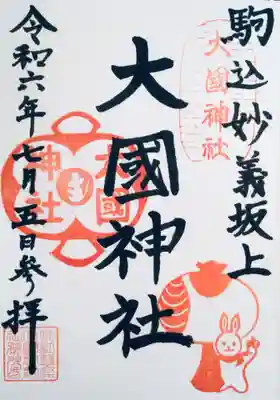 駒込妙義坂上
大國神社
大國神社
大國
神社
令和六年七月五日参拝